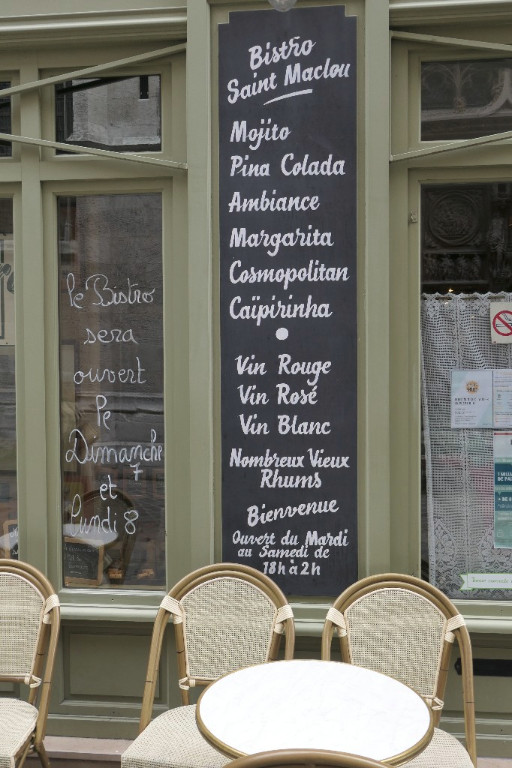 Bistro
Saint Maclou
Mojito
Pina Colada
Ambiance
Margarita
Cosmopolitan
Caïpirinha
Vin Rouge
Vin Rosé
Vin Blanc
Nombreux Vieux
Rhums
Bienvenue
Ouvert du Mardi
au Samedi de
18h à 2h
le Bistro
sera
ouvert
le
Dimanche
7
et
Lundi 8